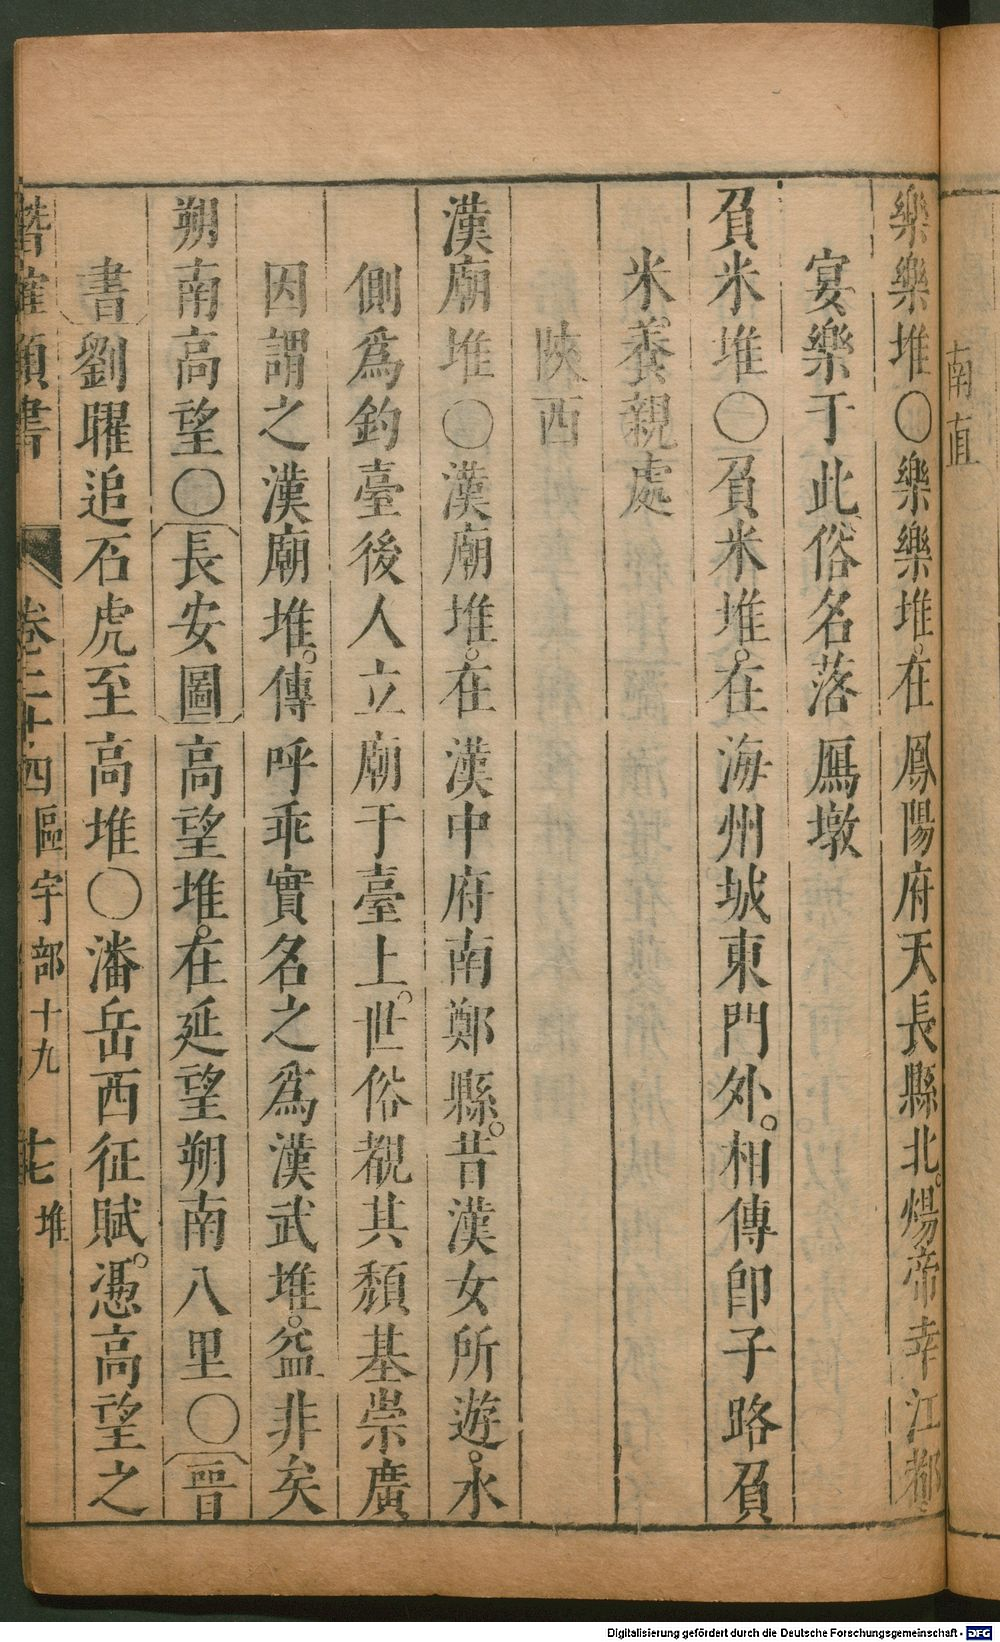 南直
樂樂堆○樂樂堆。在鳳陽府天長縣北。煬帝幸江都
宴樂于此俗名落鴈墩
負米堆○負米堆。在海州城東門外。相傳卽子路負
米養親處
陝西
漢廟堆○漢廟堆。在漢中府南鄭縣。昔漢女所遊。水
側爲釣臺後人立廟于臺上。世俗覩其頹基崇廣
因謂之漢廟堆。傳呼乖實名之爲漢武堆。葢非矣
朔南高望○長安圖高望堆。在延望朔南八里○晉
書劉曜追石虎至高堆○潘岳西征賦。憑高望之
潛確類書 卷二十四區宇部十九 十七 堆
Digitalisierung gefördert durch die Deutsche Forschungsgemeinschaft - DFG